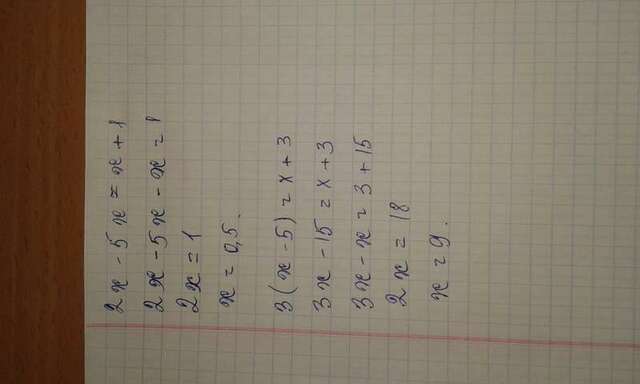 2x - 5x = x + 1
2x - 5x - x = 1
2x = 1
x = 0,5.
3(x - 5) = x + 3
3x - 15 = x + 3
3x - x = 3 + 15
2x = 18
x = 9.